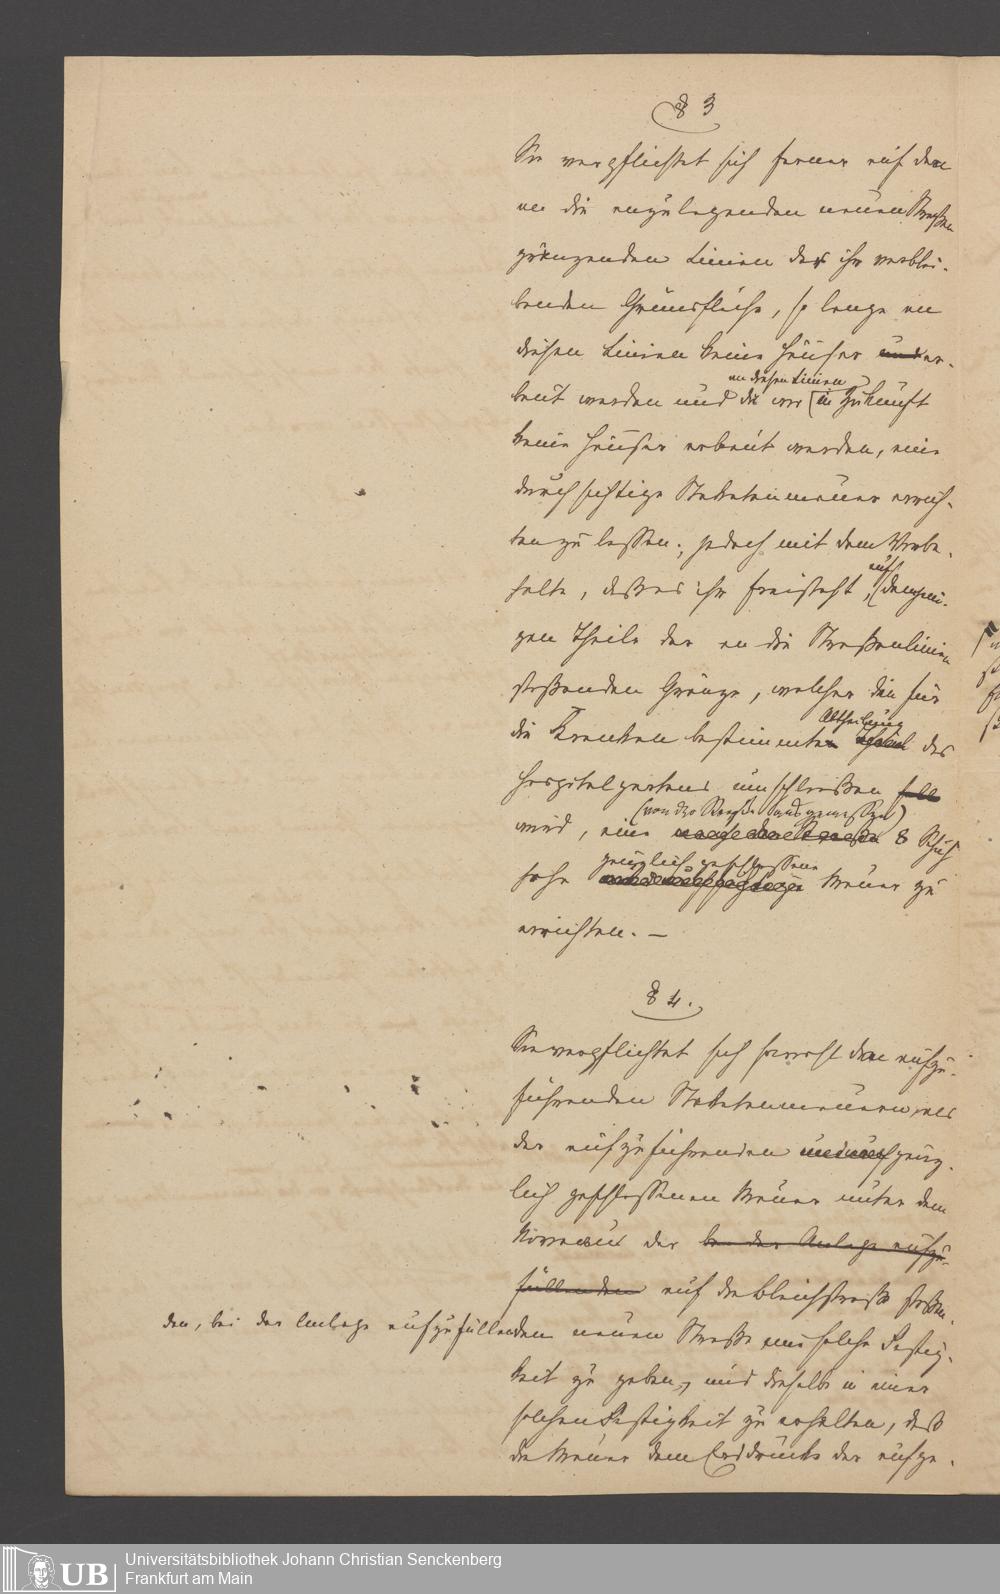 § 3
Sie verpflichtet sich ferner auf den
an die anzulegenden neuen Straßen
gränzenden Linien des ihr verblei-
benden Grundstücks, so lange an
diesen Linien keine Häuser er-
baut werden und die wo an diesen Linien in Zukunft
keine Häuser erbaut werden, eine
durchsichtige Staketenmauer errich-
ten zu lassen; jedoch mit dem Vorbe-
halte, daß es ihr freisteht, auf demjeni-
gen Theile der an die Straßenlinien
stoßenden Gränze, welcher die für
die Kranken bestimmte Abtheilung des
Hospitalgartens umschließen soll
wird, eine (von der Straße aus gemessen) 8 Schuh
hohe gänzlich geschlossene Mauer zu
errichten. —
§ 4.
Sie verpflichtet sich sowohl den aufzu-
führenden Staketenmauern, als
der aufzuführenden gänz-
lich geschlossenen Mauer unter dem
Niveau der bei der Anlage aufzu-
füllenden auf die Bleichstraße stoßen-
den, bei der Anlage aufzufüllenden neuen Straße eine solche Festig-
keit zu geben, und dieselbe in einer
solchen Festigkeit zu erhalten, daß
die Mauer dem Erddrucke der aufge-
Universitätsbibliothek Johann Christian Senckenberg
Frankfurt am Main
UB